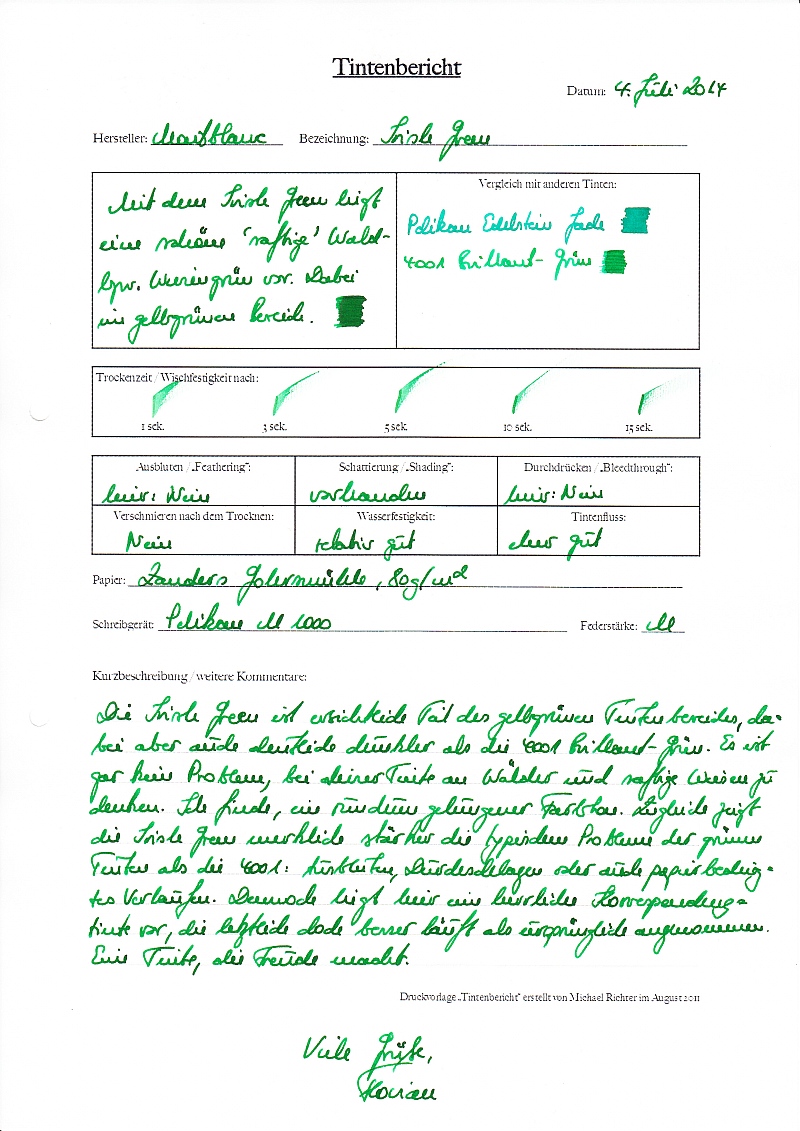 Tintenbericht
Datum: 4. Juli 2014
Hersteller: Montblanc Bezeichnung: Irish Green
Mit dem Irish Green liegt
eine schöne 'saftige' Wald-
bzw. Wiesengrün vor. Dabei
im gelbgrünen Bereich.
Vergleich mit anderen Tinten:
Pelikan Edelstein Jade
4001 Brillant-Grün
Trockenzeit / Wischfestigkeit nach:
1 sek. 3 sek. 5 sek. 10 sek. 15 sek.
Ausbluten / „Feathering": Schattierung / „Shading": Durchdrücken / „Bleedthrough":
hier: Nein vorhanden hier: Nein
Verschmieren nach dem Trocknen: Wasserfestigkeit: Tintenfluss:
Nein relativ gut eher gut
Papier: Zanders Gohrsmühle, 80g/m²
Schreibgerät: Pelikan M 1000 Federstärke: M
Kurzbeschreibung / weitere Kommentare:
Die Irish Green ist Teil des gelbgrünen Tintenbereiches, da-
bei aber auch deutlich dunkler als die 4001 Brillant-Grün. Es ist
gar kein Problem, bei dieser Tinte an Wälder und saftige Wiesen zu
denken. Ich finde, ein rundum gelungener Farbton. Zugleich zeigt
die Irish Green merklich stärker die typischen Probleme der grünen
Tinten als die 4001: Ausbluten, Durchschlagen oder auch papierbeding-
tes Verlaufen. Dennoch liegt hier eine herrliche Korrespondenz-
tinte vor, die letztlich doch besser läuft als ursprünglich angenommen.
Eine Tinte, die Freude macht.
Druckvorlage „Tintenbericht" erstellt von Michael Richter im August 2011
Viele Grüße,
Florian